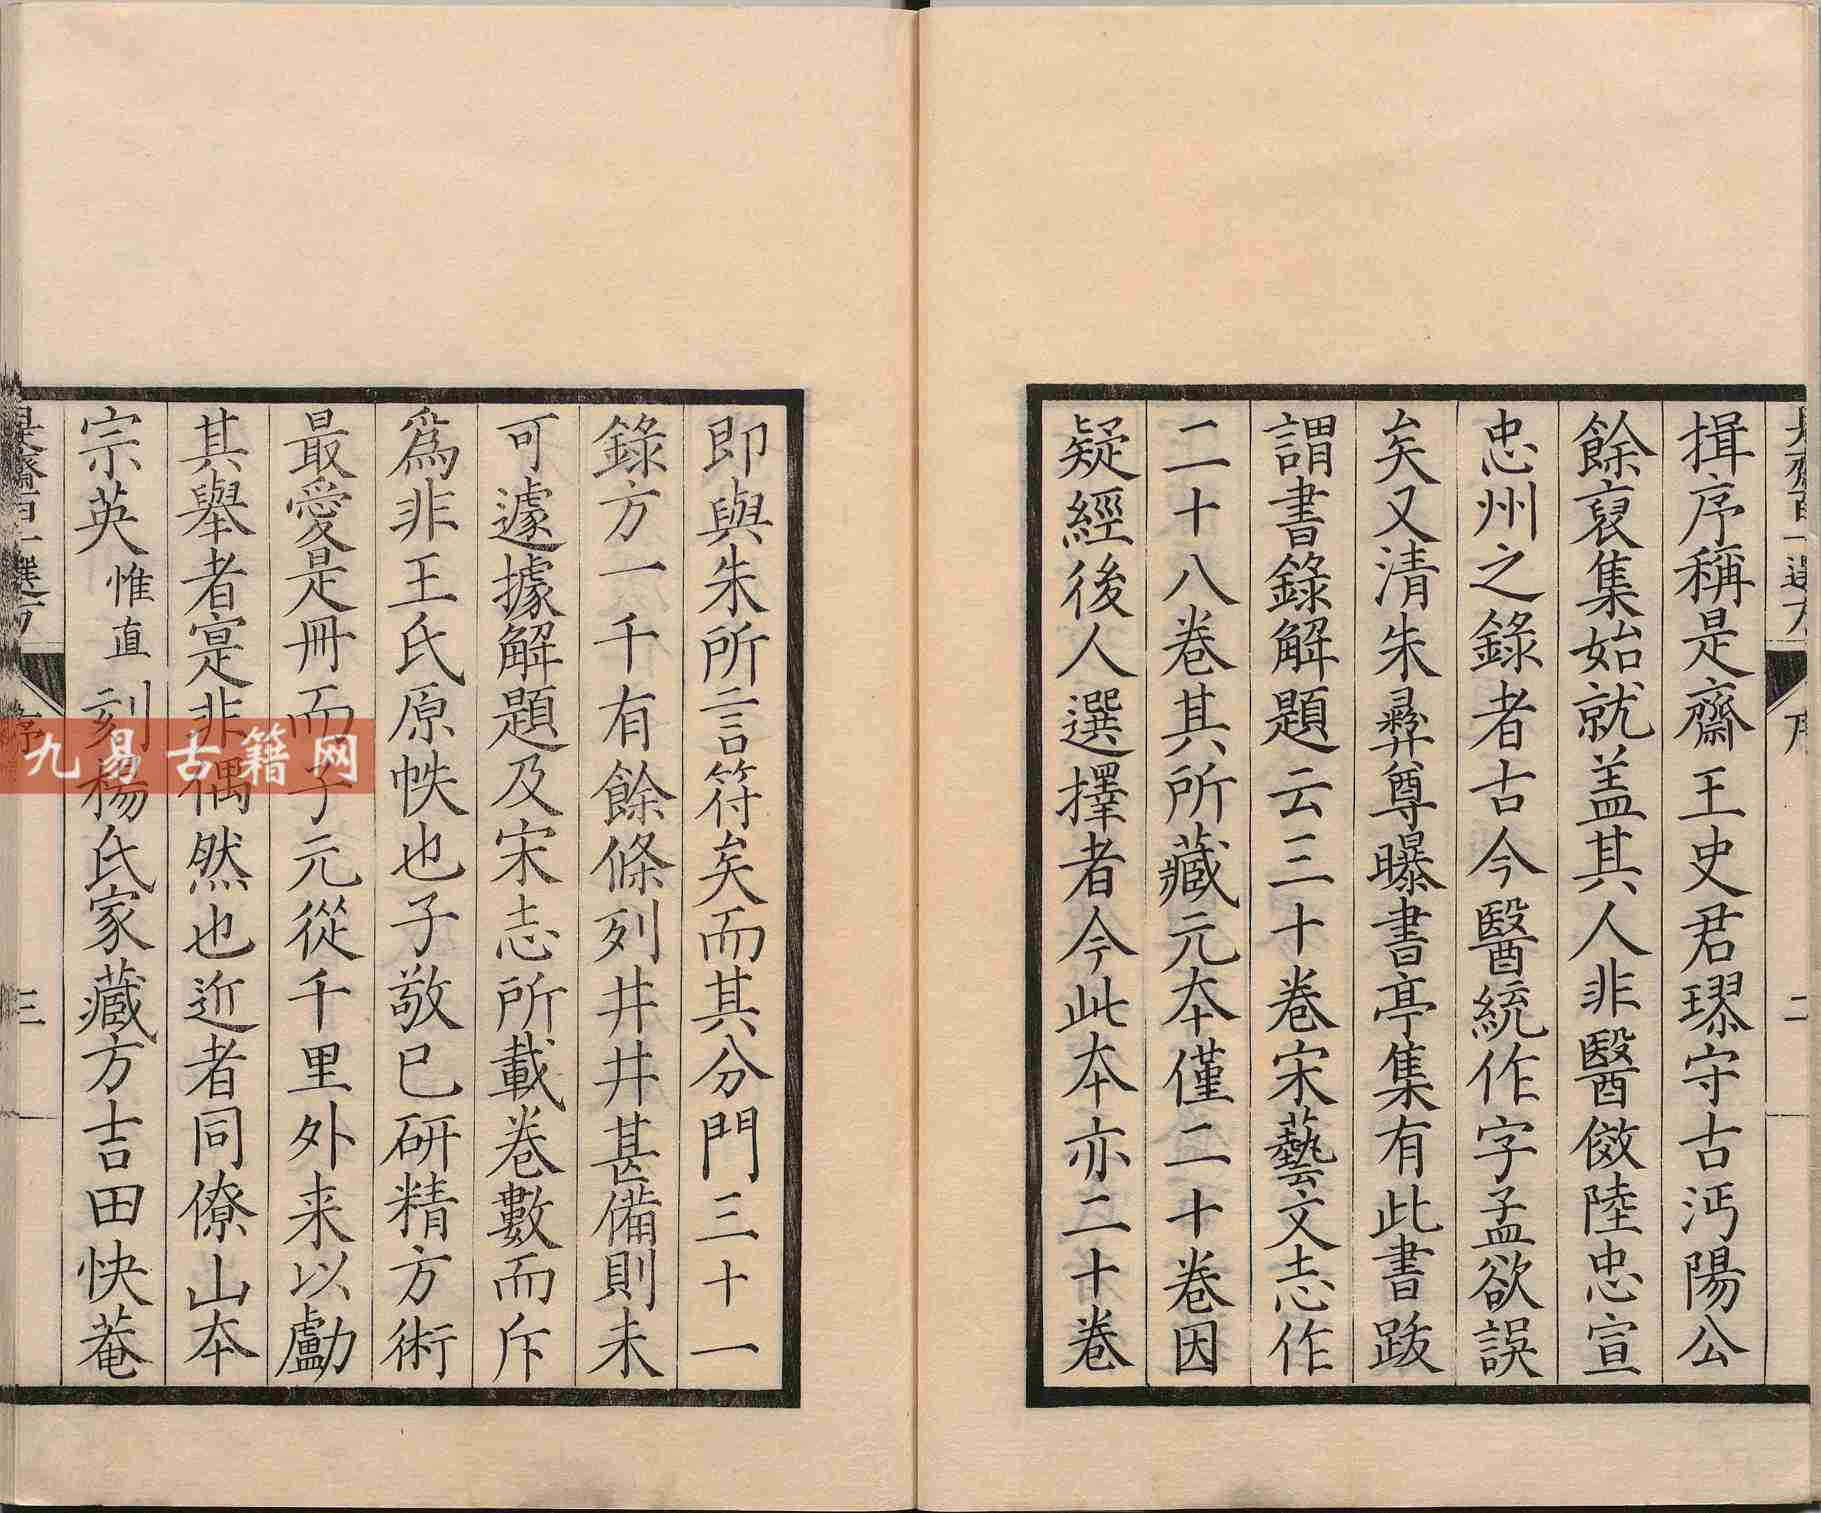 揖序稱是齋王史君璆守古沔陽公
餘裒集始就盖其人非醫傚陸忠宣
忠州之錄者古今醫統作字孟欲誤
矣又清朱彛尊曝書亭集有此書跋
謂書錄解題云三十卷宋藝文志作
二十八卷其所藏元本僅二十卷因
疑經後人選擇者今此本亦二十卷
二
即與朱所言符矣而其分門三十一
錄方一千有餘條列井井甚備則未
可遽據解題及宋志所載卷數而斥
爲非王氏原帙也子敬已研精方術
最愛是冊而子元從千里外来以勴
其舉者寔非偶然也近者同僚山本
宗英惟直刻楊氏家藏方吉田快菴
是齋百一選方
序
三
九易古籍网